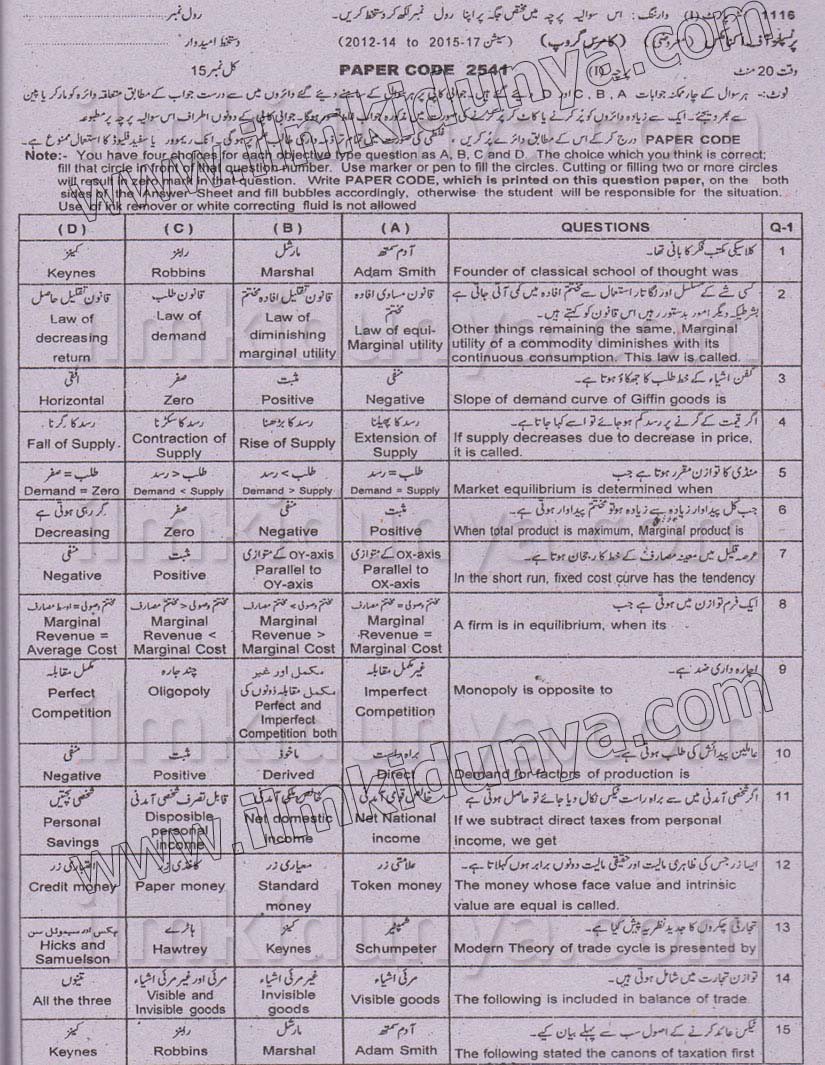 رول نمبر وارننگ: اس سوالیہ پرچہ میں مختص جگہ پر اپنا رول نمبر لکھ کر دستخط کریں۔ (پارٹ I) 1116
دستخط امیدوار (2012-14 to 2015-17 سیشن) (کامرس گروپ)
کل نمبر 15 PAPER CODE 2541 وقت 20 منٹ
Note:- You have four choices for each objective type question as A, B, C and D. The choice which you think is correct;
fill that circle in front of that question number. Use marker or pen to fill the circles. Cutting or filling two or more circles
will result in zero mark in that question. Write PAPER CODE, which is printed on this question paper, on the both
sides of the Answer Sheet and fill bubbles accordingly, otherwise the student will be responsible for the situation.
Use of ink remover or white correcting fluid is not allowed
( D ) ( C ) ( B ) ( A ) QUESTIONS Q-1
کینز رابنز مارشل آدم سمتھ کلاسیکی مکتب فکر کا بانی تھا۔ 1
Keynes Robbins Marshal Adam Smith Founder of classical school of thought was
قانون تقلیل حاصل قانون طلب قانون تقلیل افادہ مختتم قانون مساوی افادہ مختتم کسی شے کے مسلسل اور لگاتار استعمال سے مختتم افادہ میں کمی آتی جاتی ہے 2
بشرطیکہ دیگر امور بدستور رہیں اس قانون کو کہتے ہیں۔
Law of decreasing return Law of demand Law of diminishing marginal utility Law of equi-Marginal utility Other things remaining the same, Marginal
utility of a commodity diminishes with its
continuous consumption. This law is called.
افقی صفر مثبت منفی گفن اشیاء کے خط طلب کا جھکاؤ ہوتا ہے۔ 3
Horizontal Zero Positive Negative Slope of demand curve of Giffin goods is
رسد کا گرنا رسد کا سکڑنا رسد کا بڑھنا رسد کا پھیلنا اگر قیمت کے گرنے پر رسد کم ہو جائے تو اسے کہا جاتا ہے۔ 4
Fall of Supply. Contraction of Supply Rise of Supply Extension of Supply If supply decreases due to decrease in price,
it is called.
طلب = صفر طلب > رسد طلب < رسد طلب = رسد منڈی کا توازن مقرر ہوتا ہے جب 5
Demand = Zero Demand < Supply Demand > Supply Demand = Supply Market equilibrium is determined when
گر رہی ہوتی ہے صفر منفی مثبت جب کل پیداوار زیادہ سے زیادہ ہو تو مختتم پیداوار ہوتی ہے۔ 6
Decreasing Zero Negative Positive When total product is maximum, Marginal product is
منفی مثبت OY-axis کے متوازی OX-axis کے متوازی عرصہ قلیل میں معینہ مصارف کے خط کا رجحان ہوتا ہے۔ 7
Negative Positive Parallel to OY-axis Parallel to OX-axis In the short run, fixed cost curve has the tendency
مختتم وصولی = اوسط مصارف مختتم وصولی > مختتم مصارف مختتم وصولی < مختتم مصارف مختتم وصولی = مختتم مصارف ایک فرم توازن میں ہوتی ہے جب 8
Marginal Revenue = Average Cost Marginal Revenue < Marginal Cost Marginal Revenue > Marginal Cost Marginal Revenue = Marginal Cost A firm is in equilibrium, when its
مکمل مقابلہ چند اجارہ مکمل اور غیر مکمل مقابلہ دونوں کی غیر مکمل مقابلہ اجارہ داری ضد ہے۔ 9
Perfect Competition Oligopoly Perfect and Imperfect Competition both Imperfect Competition Monopoly is opposite to
منفی مثبت ماخوذ براہ راست عاملین پیدائش کی طلب ہوتی ہے۔ 10
Negative Positive Derived Direct Demand for factors of production is
شخصی بچتیں قابل تصرف شخصی آمدنی خالص ملکی آمدنی خالص قومی آمدنی اگر شخصی آمدنی میں سے براہ راست ٹیکس نکال دیا جائے تو حاصل ہوتی ہے 11
Personal Savings Disposable personal income Net domestic income Net National income If we subtract direct taxes from personal
income, we get
اعتباری زر کاغذی زر معیاری زر علامتی زر ایسا زر جس کی ظاہری مالیت اور حقیقی مالیت دونوں برابر ہوں کہلاتا ہے۔ 12
Credit money Paper money Standard money Token money The money whose face value and intrinsic
value are equal is called.
ہکس اور سیموئل سن ہاٹرے کینز شمپیٹر تجارتی چکروں کا جدید نظریہ پیش کیا ہے۔ 13
Hicks and Samuelson Hawtrey Keynes Schumpeter Modern Theory of trade cycle is presented by
تینوں مرئی اور غیر مرئی اشیاء غیر مرئی اشیاء مرئی اشیاء توازن تجارت میں شامل ہوتی ہیں۔ 14
All the three Visible and Invisible goods Invisible goods Visible goods The following is included in balance of trade
کینز رابنز مارشل آدم سمتھ ٹیکس عائد کرنے کے اصول سب سے پہلے بیان کیے۔ 15
Keynes Robbins Marshal Adam Smith The following stated the canons of taxation first
www.ilmkidunya.com
www.ilmkidunya.com